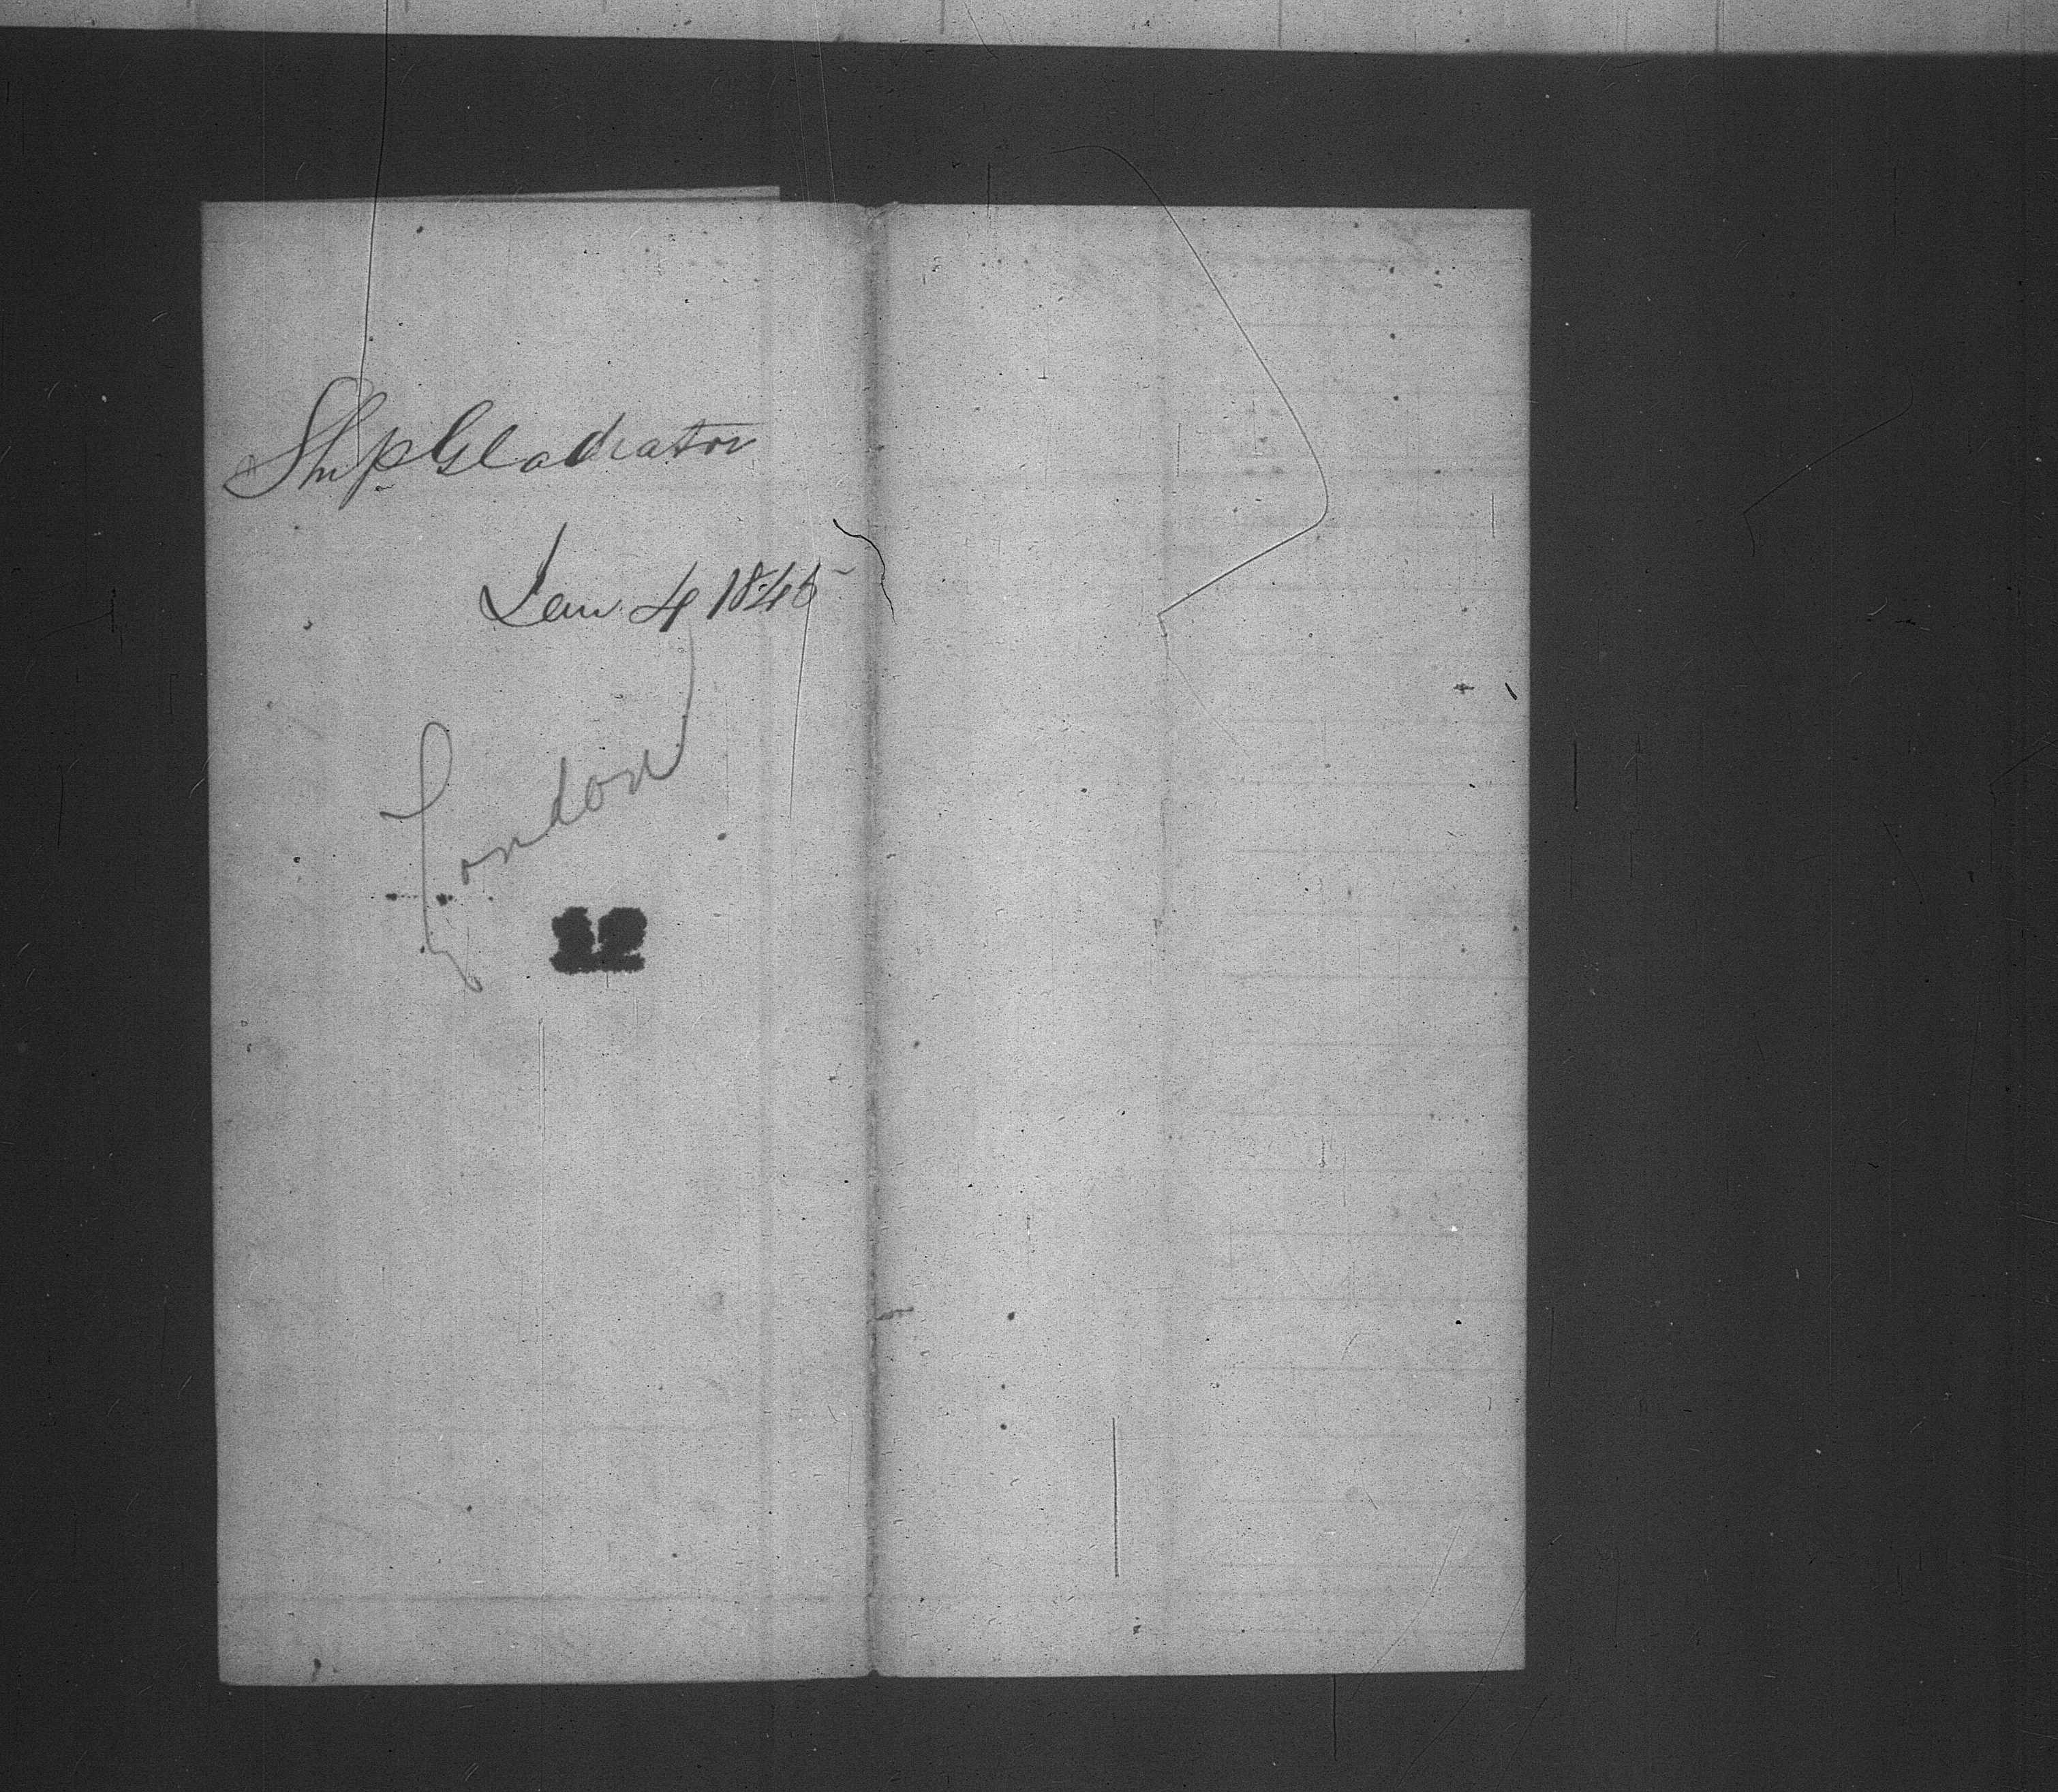 Ship Gladiator
Jan 4 1845
London
12